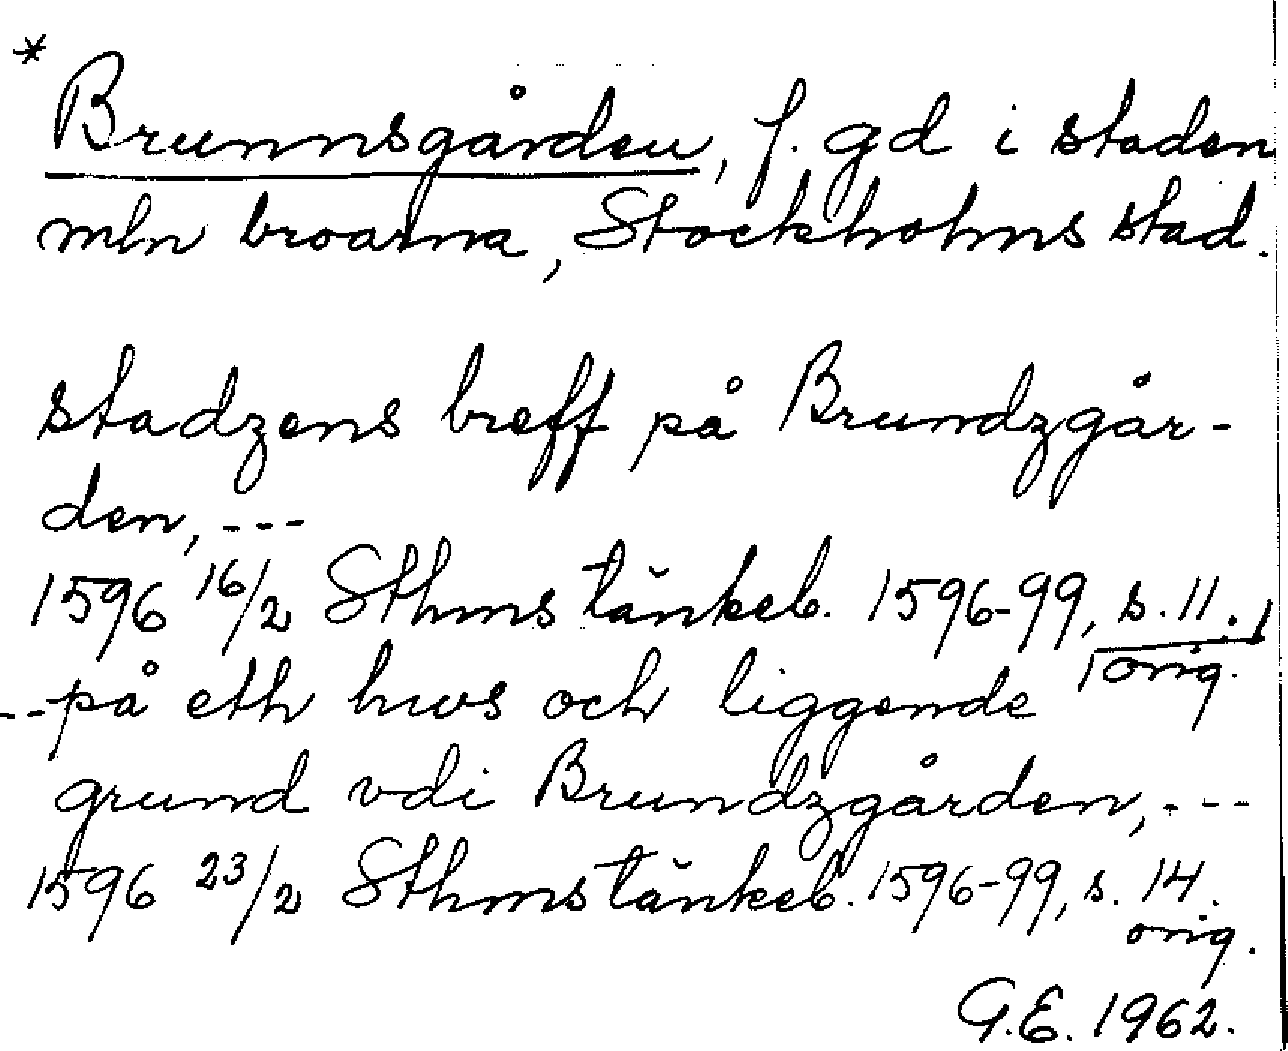 * Brunnsgården, f. gd i staden
mln broarna, Stockholms stad.
stadzens breff på Brundzgår-
den, ---
1596 16/2 Sthms tänkeb. 1596-99, s. 11.,
orig.
--- på eth hws och liggende
grund vdi Brundzgården, ---
1596 23/2 Sthms tänkeb. 1596-99, s. 14.
orig.
G.E. 1962.